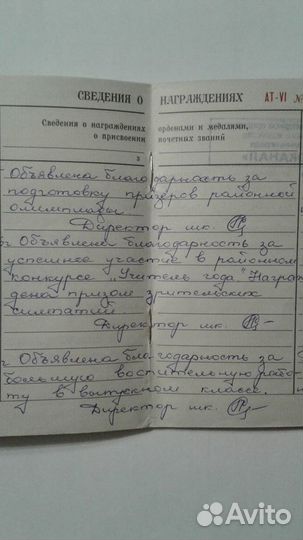 СВЕДЕНИЯ О НАГРАЖДЕНИЯХ АТ-VI №
Сведения о награждениях орденами и медалями,
о присвоении почетных званий
3
Объявлена благодарность за
подготовку призеров районной
олимпиады.
Директор шк.
Объявлена благодарность за
успешное участие в районном
конкурсе "Учитель года." Награж
дена призом зрительских
симпатий.
Директор шк.
Объявлена благодарность за
большую воспительную рабо-
ту в выпускном классе.
Директор шк.
Avito